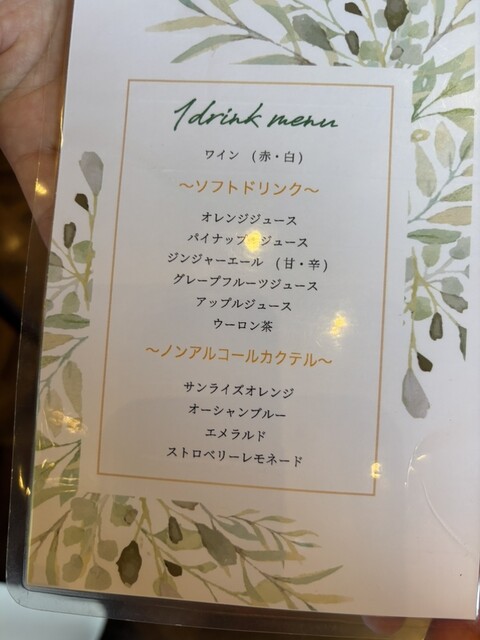 1 drink menu
ワイン (赤・白)
〜ソフトドリンク〜
オレンジジュース
パイナップルジュース
ジンジャーエール (甘・辛)
グレープフルーツジュース
アップルジュース
ウーロン茶
〜ノンアルコールカクテル〜
サンライズオレンジ
オーシャンブルー
エメラルド
ストロベリーレモネード